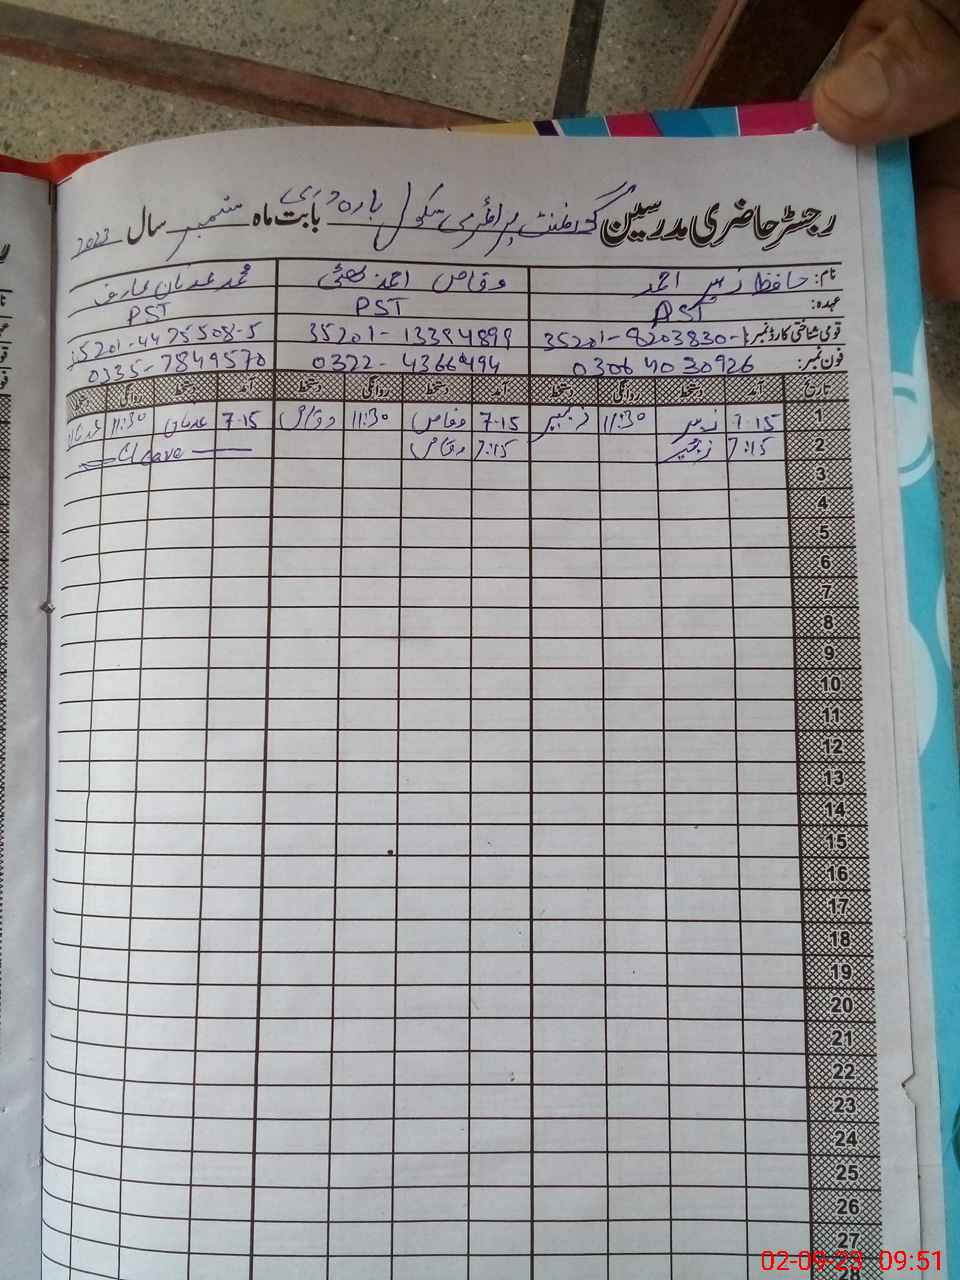 رجسٹر حاضری مدرسین گورنمنٹ پرائمری سکول بارہ دری بابت ماہ ستمبر سال 2023
نام: حافظ زبیر احمد وقاص احمد بھٹی محمد عدنان عارف
عہدہ: PST PST
قومی شناختی کارڈ نمبر: 35201-8203830- 35201-13394899 35201-4425508-5
فون نمبر: 0306 4030926 0322-4366494 0335-7849570
تاریخ آمد دستخط روانگی دستخط آمد دستخط روانگی دستخط آمد دستخط روانگی دستخط
1 7.15 زبیر 11:30 زبیر 7.15 وقاص 11:30 وقاص 7.15 عدنان 11:30 عدنان
2 7:15 زبیر 7:15 وقاص Leave
3
4
5
6
7
8
9
10
11
12
13
14
15
16
17
18
19
20
21
22
23
24
25
26
27
28
02-09-23 09:51